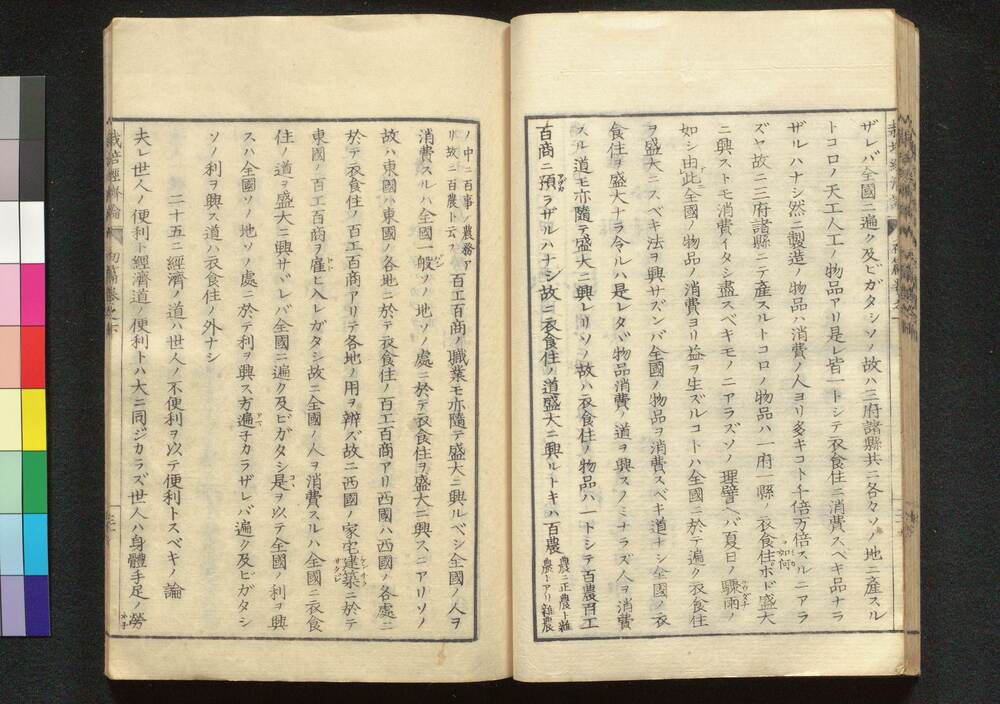 ザレバ全國ニ遍ク及ビガタシソノ故ハ三府諸縣共ニ各々ソノ地ニ產スル
トコロノ天工人工ノ物品アリ是レ皆一トシテ衣食住ニ消費スベキ品ナラ
ザルハナシ然ニ製造ノ物品ハ消費ノ人ヨリ多キコト千倍万倍スルニアラ
ズヤ故ニ三府諸縣ニテ產スルトコロノ物品ハ一府一縣ノ衣食住如何ホド盛大
ニ興ストモ消費イタシ盡スベキモノニアラズソノ理譬ヘバ夏日ノ驟雨ノ
如シ由此全國ノ物品ノ消費ヨリ益ヲ生ズルコトハ全國ニ於テ遍ク衣食住
ヲ盛大ニスベキ法ヲ興サズンバ全國ノ物品ヲ消費スベキ道ナシ全國ノ衣
食住ヲ盛大ナラ令ルハ是レタヾ物品消費ノ道ヲ興スノミナラズ人ヲ消費
スル道モ亦隨テ盛大ニ興レリソノ故ハ衣食住ノ物品ハ一トシテ百農百工
百商ニ預ラザルハナシ故ニ衣食住ノ道盛大ニ興ルトキハ百農農ニ正農ト雜農トアリ雜農
ノ中ニ百事ノ農務アリ故ニ百農ト云フ百工百商ノ職業モ亦隨テ盛大ニ興ルベシ全國ノ人ヲ
消費スルハ全國一般ソノ地ソノ處ニ於テ衣食住ヲ盛大ニ興スニアリソノ
故ハ東國ハ東國ノ各地ニ於テ衣食住ノ百工百商アリ西國ハ西國ノ各處ニ
於テ衣食住ノ百工百商アリテ各地ノ用ヲ辨ズ故ニ西國ノ家宅建築ニ於テ
東國ノ百工百商ヲ雇ヒ入レガタシ故ニ全國ノ人ヲ消費スルハ全國ニ衣食
住ノ道ヲ盛大ニ興サヾレバ全國ニ遍ク及ビガタシ是ヲ以テ全國ノ利ヲ興
スハ全國ソノ地ソノ處ニ於テ利ヲ興ス方遍子カラザレバ遍ク及ビガタシ
ソノ利ヲ興ス道ハ衣食住ノ外ナシ
二十五ニ經濟ノ道ハ世人ノ不便利ヲ以テ便利トスベキノ論
夫レ世人ノ便利ト經濟道ノ便利トハ大ニ同ジカラズ世人ハ身體手足ノ勞
栽培經濟論 初篇卷之下